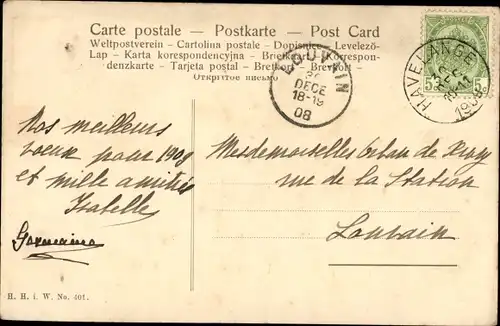 Carte postale — Postkarte — Post Card
Weltpostverein — Cartolina postale — Dopisnice — Levelező-
Lap — Karta korespondencyjna — Briefkaart — Korrespon-
denzkarte — Tarjeta postal — Bretkort — Brevkort —
Открытое письмо
LOUVAIN
DECE
18-19
08
HAVELANGE
1908
5 5
Nos meilleurs
voeux pour 1909
et mille amitiés
Isabelle
Germaine
Mesdemoiselles Orban de Xivry
rue de la Station
Louvain
H. H. i. W. No. 401.